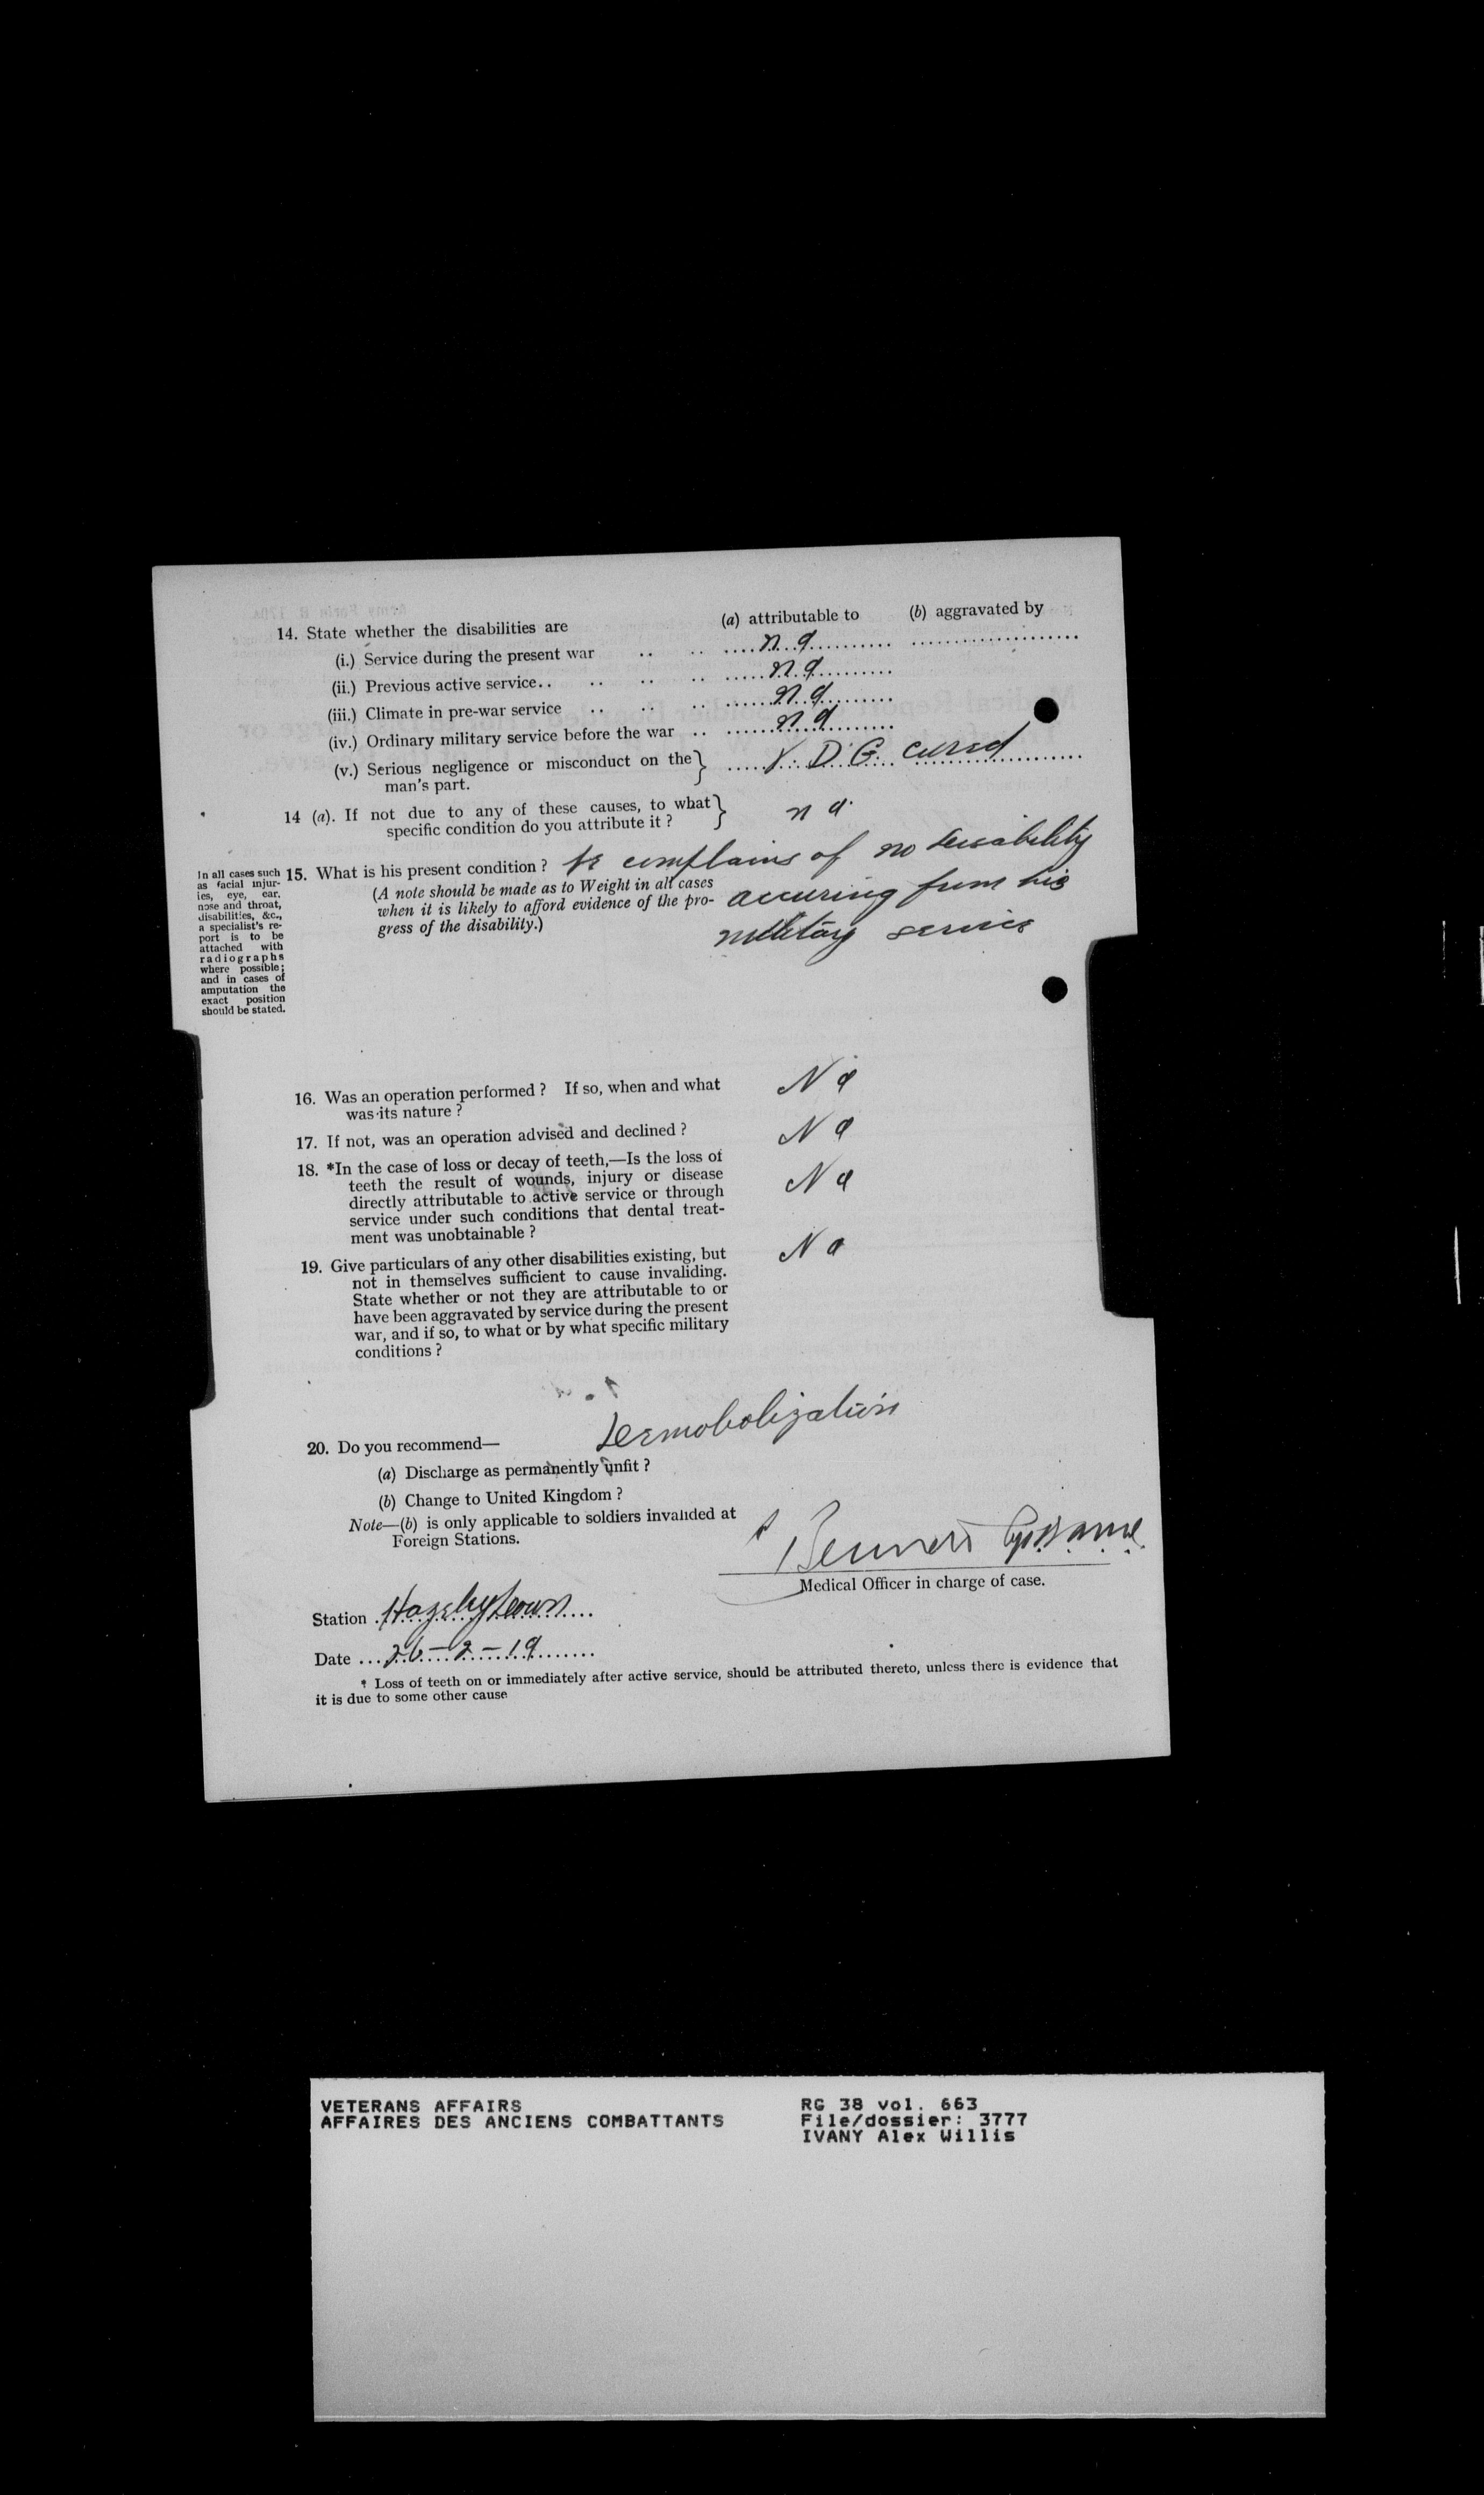 14. State whether the disabilities are (a) attributable to (b) aggravated by
(i.) Service during the present war .. .. n a
(ii.) Previous active service.. .. .. .. n a
(iii.) Climate in pre-war service .. .. .. n a
(iv.) Ordinary military service before the war .. n a
(v.) Serious negligence or misconduct on the } V. D. G. cured
man's part.
14 (a). If not due to any of these causes, to what } n a
specific condition do you attribute it ?
In all cases such
as facial injur-
ies, eye, ear,
nose and throat,
disabilities, &c.,
a specialist's re-
port is to be
attached with
radiographs
where possible;
and in cases of
amputation the
exact position
should be stated.
15. What is his present condition ? He complains of no disability
(A note should be made as to Weight in all cases
when it is likely to afford evidence of the pro-
gress of the disability.)
accuring from his
military service
16. Was an operation performed ? If so, when and what N a
was its nature ?
17. If not, was an operation advised and declined ? N a
18. *In the case of loss or decay of teeth,—Is the loss of N a
teeth the result of wounds, injury or disease
directly attributable to active service or through
service under such conditions that dental treat-
ment was unobtainable ?
19. Give particulars of any other disabilities existing, but N a
not in themselves sufficient to cause invaliding.
State whether or not they are attributable to or
have been aggravated by service during the present
war, and if so, to what or by what specific military
conditions ?
Demobolization
20. Do you recommend—
(a) Discharge as permanently unfit ?
(b) Change to United Kingdom ?
Note—(b) is only applicable to soldiers invalided at
Foreign Stations.
Medical Officer in charge of case.
Station
Date ... 26-2-19
* Loss of teeth on or immediately after active service, should be attributed thereto, unless there is evidence that
it is due to some other cause
VETERANS AFFAIRS
AFFAIRES DES ANCIENS COMBATTANTS
RG 38 vol. 663
File/dossier: 3777
IVANY Alex Willis